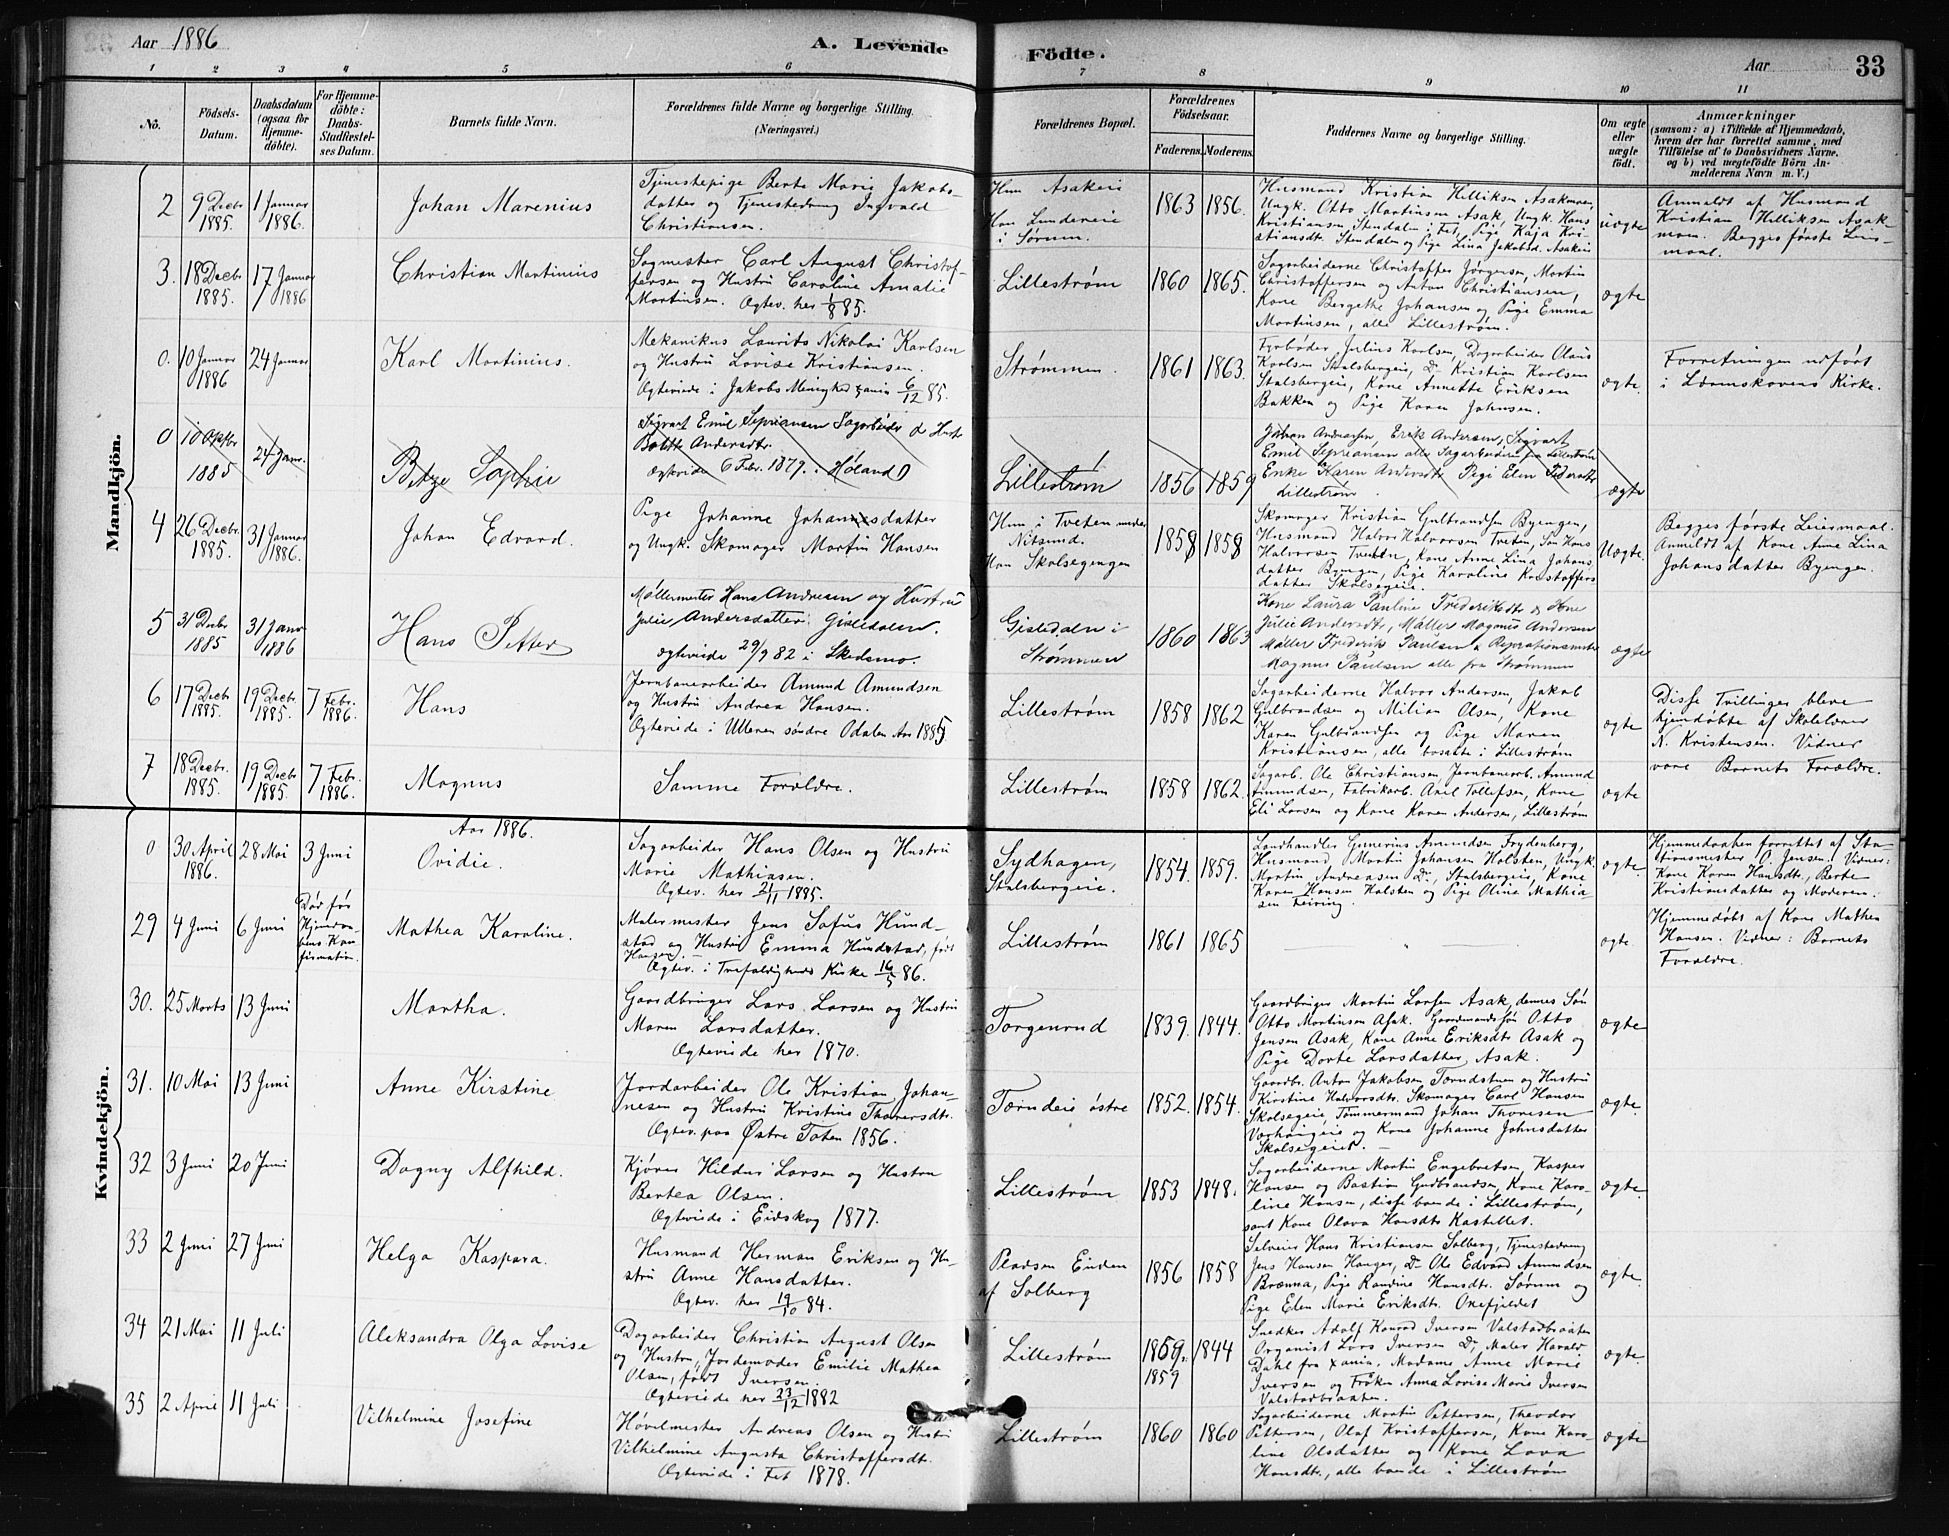 Aar 1886
A. Levende
Födte.
Aar
33
1 2 3 4 5 6 7 8 9 10 11
No.
Födsels-
Datum.
Daabsdatum
(ogsaa for
Hjemme-
döbte).
For Hjemme-
döbte:
Daabs-
Stadfæstel-
ses Datum.
Barnets fulde Navn.
Forældrenes fulde Navne og borgerlige Stilling.
(Næringsvei.)
Forældrenes Bopæl.
Forældrenes
Födselsaar.
Faderens.
Moderens.
Faddernes Navne og borgerlige Stilling.
Om ægte
eller
uægte
födt.
Anmærkninger
(saasom: a) i Tilfælde af Hjemmedaab,
hvem der har forrettet samme, med
Tilföielse af to Daabsvidners Navne,
og b) ved uegtefödte Börn An-
melderens Navn m. V.)
Mandkjön.
2
9 Decbr
1885.
1 Januar
1886.
Johan Marenius
Tjenestepige Berte Marie Jakobs-
datter og Tjenestedreng Ingvald
Christiansen.
Hun Asakeie
Han Lundereie
i Sørum.
1863
1856.
Husmand Kristian Helliksen Asakmoen,
Ungk. Otto Martinsen Asak, Ungk. Hans
Kristiansen, Stendalen i Fet, Pige Kaja Kri-
stiansdt. Stendalen og Pige Lina Jakobsd. Asakeie
uægte
Anmeldt af Husmand
Kristian Helliksen Asak-
moen. Begges første Leier-
maal.
3.
18 Decbr
1885.
17 Januar
1886
Christian Martinius
Sagmester Carl August Christof-
fersen og Hustru Caroline Amalie
Martinsen. Ægtev. her 1/8 85.
Lillestrøm
1860
1865.
Sagarbeiderne Christoffer Jörgensen, Martin
Christoffersen og Anton Christiansen,
Kone Bergethe Johansen og Pige Emma
Martinsen, alle Lillestrøm.
ægte
0.
10 Januar
1886
24 Januar
Karl Martinius.
Mekanikus Laurits Nikolai Karlsen
og Hustru Lovise Kristiansen.
Ægteviede i Jakobs Menighed xania 6/12 85.
Strømmen.
1861
1863.
Fyrbøder Julius Karlsen, Dagarbeider Olaus
Karlsen Stalsbergeie, Do Kristian Karlsen
Stalsbergeie, Kone Annette Eriksen
Bakken og Pige Karen Johnsen.
ægte.
Forretningen udført
i Lørenskovens Kirke.
0
1885
24 Janr.
Betze Sophie
Sigvart Emil Sepriansen Sagarbeider & Hustr
Bolette Andersdtr.
Ægteviede 6 Febr. 1879. i Høland
Lillestrøm
1856
1859
Johan Andreassen, Erik Andersen, Sigvart
Emil Seprianen alle Sagarbeidere fra Lillestrøm
Enke Karen Andersdtr. Pige Elen Pedersdtr
Lillestrøm.
ægte
4
26 Decbr.
1885.
31 Januar
1886.
Johan Edvard.
Pige Johanne Johannesdatter
og Ungk. Skomager Martin Hansen
Hun i Tveten under
Nitsund.
Han Skolsegengen
1858
1858
Skomager Kristian Gulbrandsen Byengen,
Husmand Halvor Halvorsen Tveten, Søn Hans
Halvorsen Tveten, Kone Anne Lina Johans-
datter Byengen, Pige Karoline Kristoffers
datter Skolsegeie.
Uægte.
Begges første Leiermaal.
Anmeldt af Kone Anne Lina
Johansdatter Byengen.
5
31 Decbr
1885
31 Janr
1886
Hans Petter
Møllermester Hans Andresen og Hustru
Julie Andersdatter Gisledalen.
Ægteviede 29/9 82 i Skedsmo.
Gisledalen i
Strømmen
1860
1863
Kone Laura Pauline Frederiksdtr & Kone
Julie Andersdt, Møller Magnus Andersen
Møller Frederik Paulsen & Reprationsmster
Magnus Paulsen alle fra Strømmen
ægte
6
17 Decbr
1885.
19 Decbr.
1885.
7 Febr.
1886.
Hans
Jernbanearbeider Amund Amundsen
og Hustru Andrea Hansen.
Ægteviede i Ulleren søndre Odalen Aar 1885
Lillestrøm
1858
1862
Sagarbeiderne Halvor Andersen, Jakob
Gulbrandsen og Milian Olsen, Kone
Karen Gulbrandsen og Pige Maren
Kristiansen, alle bosatte i Lillestrøm
ægte
Disse Tvillinger bleve
hjemdøbte af Skolelærer
N. Kristensen. Vidner
vare Barnets Forældre.
7
18 Decbr.
1885.
19 Decbr
1885.
7 Febr.
1886.
Magnus
Samme Forældre.
Lillestrøm
1858
1862.
Sagarb. Ole Christiansen, Jernbanearb. Amund
Amundsen, Fabrikarb. Axel Tollefsen, Kone
Eli Larsen og Kone Karen Andersen, Lillestrøm
ægte
Kvindekjön.
Aar 1886.
0
30 April
1886.
28 Mai
3 Juni
Ovidie.
Sagarbeider Hans Olsen og Hustru
Marie Mathiasen.
Ægtev. her 21/11 1885.
Sydhagen,
Stalsbergeie.
1854.
1859.
Landhandler Gunerius Amundsen Frydenberg,
Husmand Martin Johansen Holsten, Ungk.
Martin Andreasen Do, Stalsbergeie, Kone
Karen Hansen Holsten og Pige Oline Mathia-
sen Feiring.
ægte
Hjemmedaaben forrettet af Sta-
tionsmester O. Jensen. Vidner:
Kone Karen Hansdt., Berte
Kristiansdatter og Moderen.
29
4 Juni
6 Juni
Død før
Hjemmedaa-
bens Kon
firmation.
Mathea Karoline.
Malermester Jens Sofus Hund-
stad og Hustru Emma Hundstad, født
Hansen.
Ægtev. i Trefoldigheds Kirke 16/5 86.
Lillestrøm
1861
1865
ægte
Hjemmedøbt af Kone Mathea
Hansen. Vidner: Barnets
Forældre.
30.
25 Marts
13 Juni
Martha.
Gaardbruger Lars Larsen og Hustru
Maren Larsdatter.
Ægteviede her 1870.
Torgenrud
1839.
1844.
Gaardbruger Martin Larsen Asak, dennes Søn
Otto Martinsen Asak. Gaardmandssøn Otto
Jensen Asak, Kone Anne Eriksdt. Asak og
Pige Dorte Larsdatter, Asak.
ægte
31.
10 Mai
13 Juni
Anne Kirstine
Jordarbeider Ole Kristian Johan-
nesen og Hustru Kristine Thorersdt.
Ægtev. paa Østre Toten 1856.
Tærndeie østre
1852.
1854.
Gaardbr. Anton Jakobsen Tærndstuen og Hustru
Kirstine Halvorsdt. Skomager Carl Hansen
Skolsegeie, Tømmermand Johan Thoresen
Varhaugeie og Kone Johanne Johnsdatter
Skolsegeiet.
ægte
32
3 Juni
20 Juni
Dagny Alfhild.
Kjører Hildus Larsen og Hustru
Bertea Olsen.
Ægteviede i Eidskog 1877.
Lillestrøm
1853
1848.
Sagarbeiderne Martin Engebretsen, Kasper
Hansen og Bastian Gudbrandsen, Kone Karo-
line Hansen, disse boende i Lillestrøm,
samt Kone Olava Hansdt. Kastellet.
ægte
33
2 Juni
27 Juni
Helga Kaspara.
Husmand Herman Eriksen og Hu-
stru Anne Hansdatter.
Ægtev. her 19/10 84.
Pladsen Enden
af Solberg
1856
1858
Selveier Hans Kristiansen Solberg, Tjenestedreng
Jens Hansen Hauger, Do Ole Edvard Amundsen
Brænna, Pige Randine Hansdt. Sørum og
Pige Elen Marie Eriksdt. Oxefjeldet
ægte.
34
21 Mai
11 Juli
Aleksandra Olga Lovise
Dagarbeider Christian August Olsen
og Hustru, Jordemoder Emilie Mathea
Olsen, født Iversen.
Ægteviede her 23/12 1882
Lillestrøm
1859.
1859
1844
Snedker Adolf Konrad Iversen Valstadbraaten
Organist Lars Iversen Do, Maler Harald
Dahl fra xania. Madame Anne Marie
Iversen og Frøken Anna Lovise Marie Iversen
Valstadbraaten.
ægte
35
2 April
11 Juli
Vilhelmine Josefine
Høvelmester Andreas Olsen og Hustru
Vilhelmine Augusta Christoffersdt.
Ægteviede i Fet 1878.
Lillestrøm
1860
1860
Sagarbeiderne Martin Pettersen, Theodor
Pettersen, Olaf Kristoffersen, Kone Karo-
line Olsdatter og Kone Lava
Hansdt., alle boende i Lillestrøm
ægte